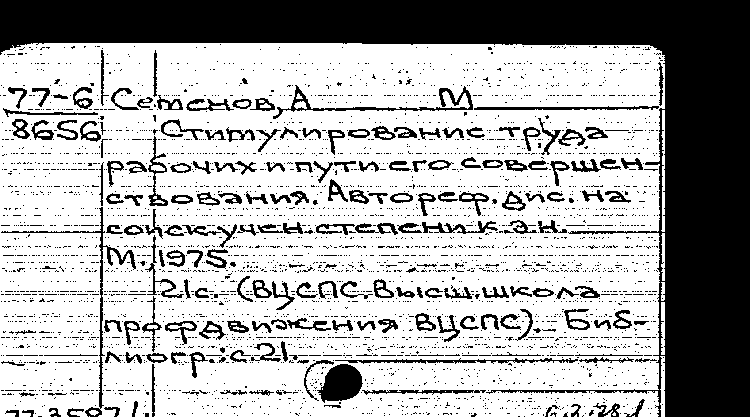 77-6 Семенов, А М
8656 Стимулирование труда
рабочих и пути его совершен-
ствования. Автореф. дис. на
соиск. учен. степени к. э. н.
М., 1975.
21 с. (ВЦСПС. Высш. школа
профдвижения ВЦСПС). Биб-
лиогр.: с. 21.